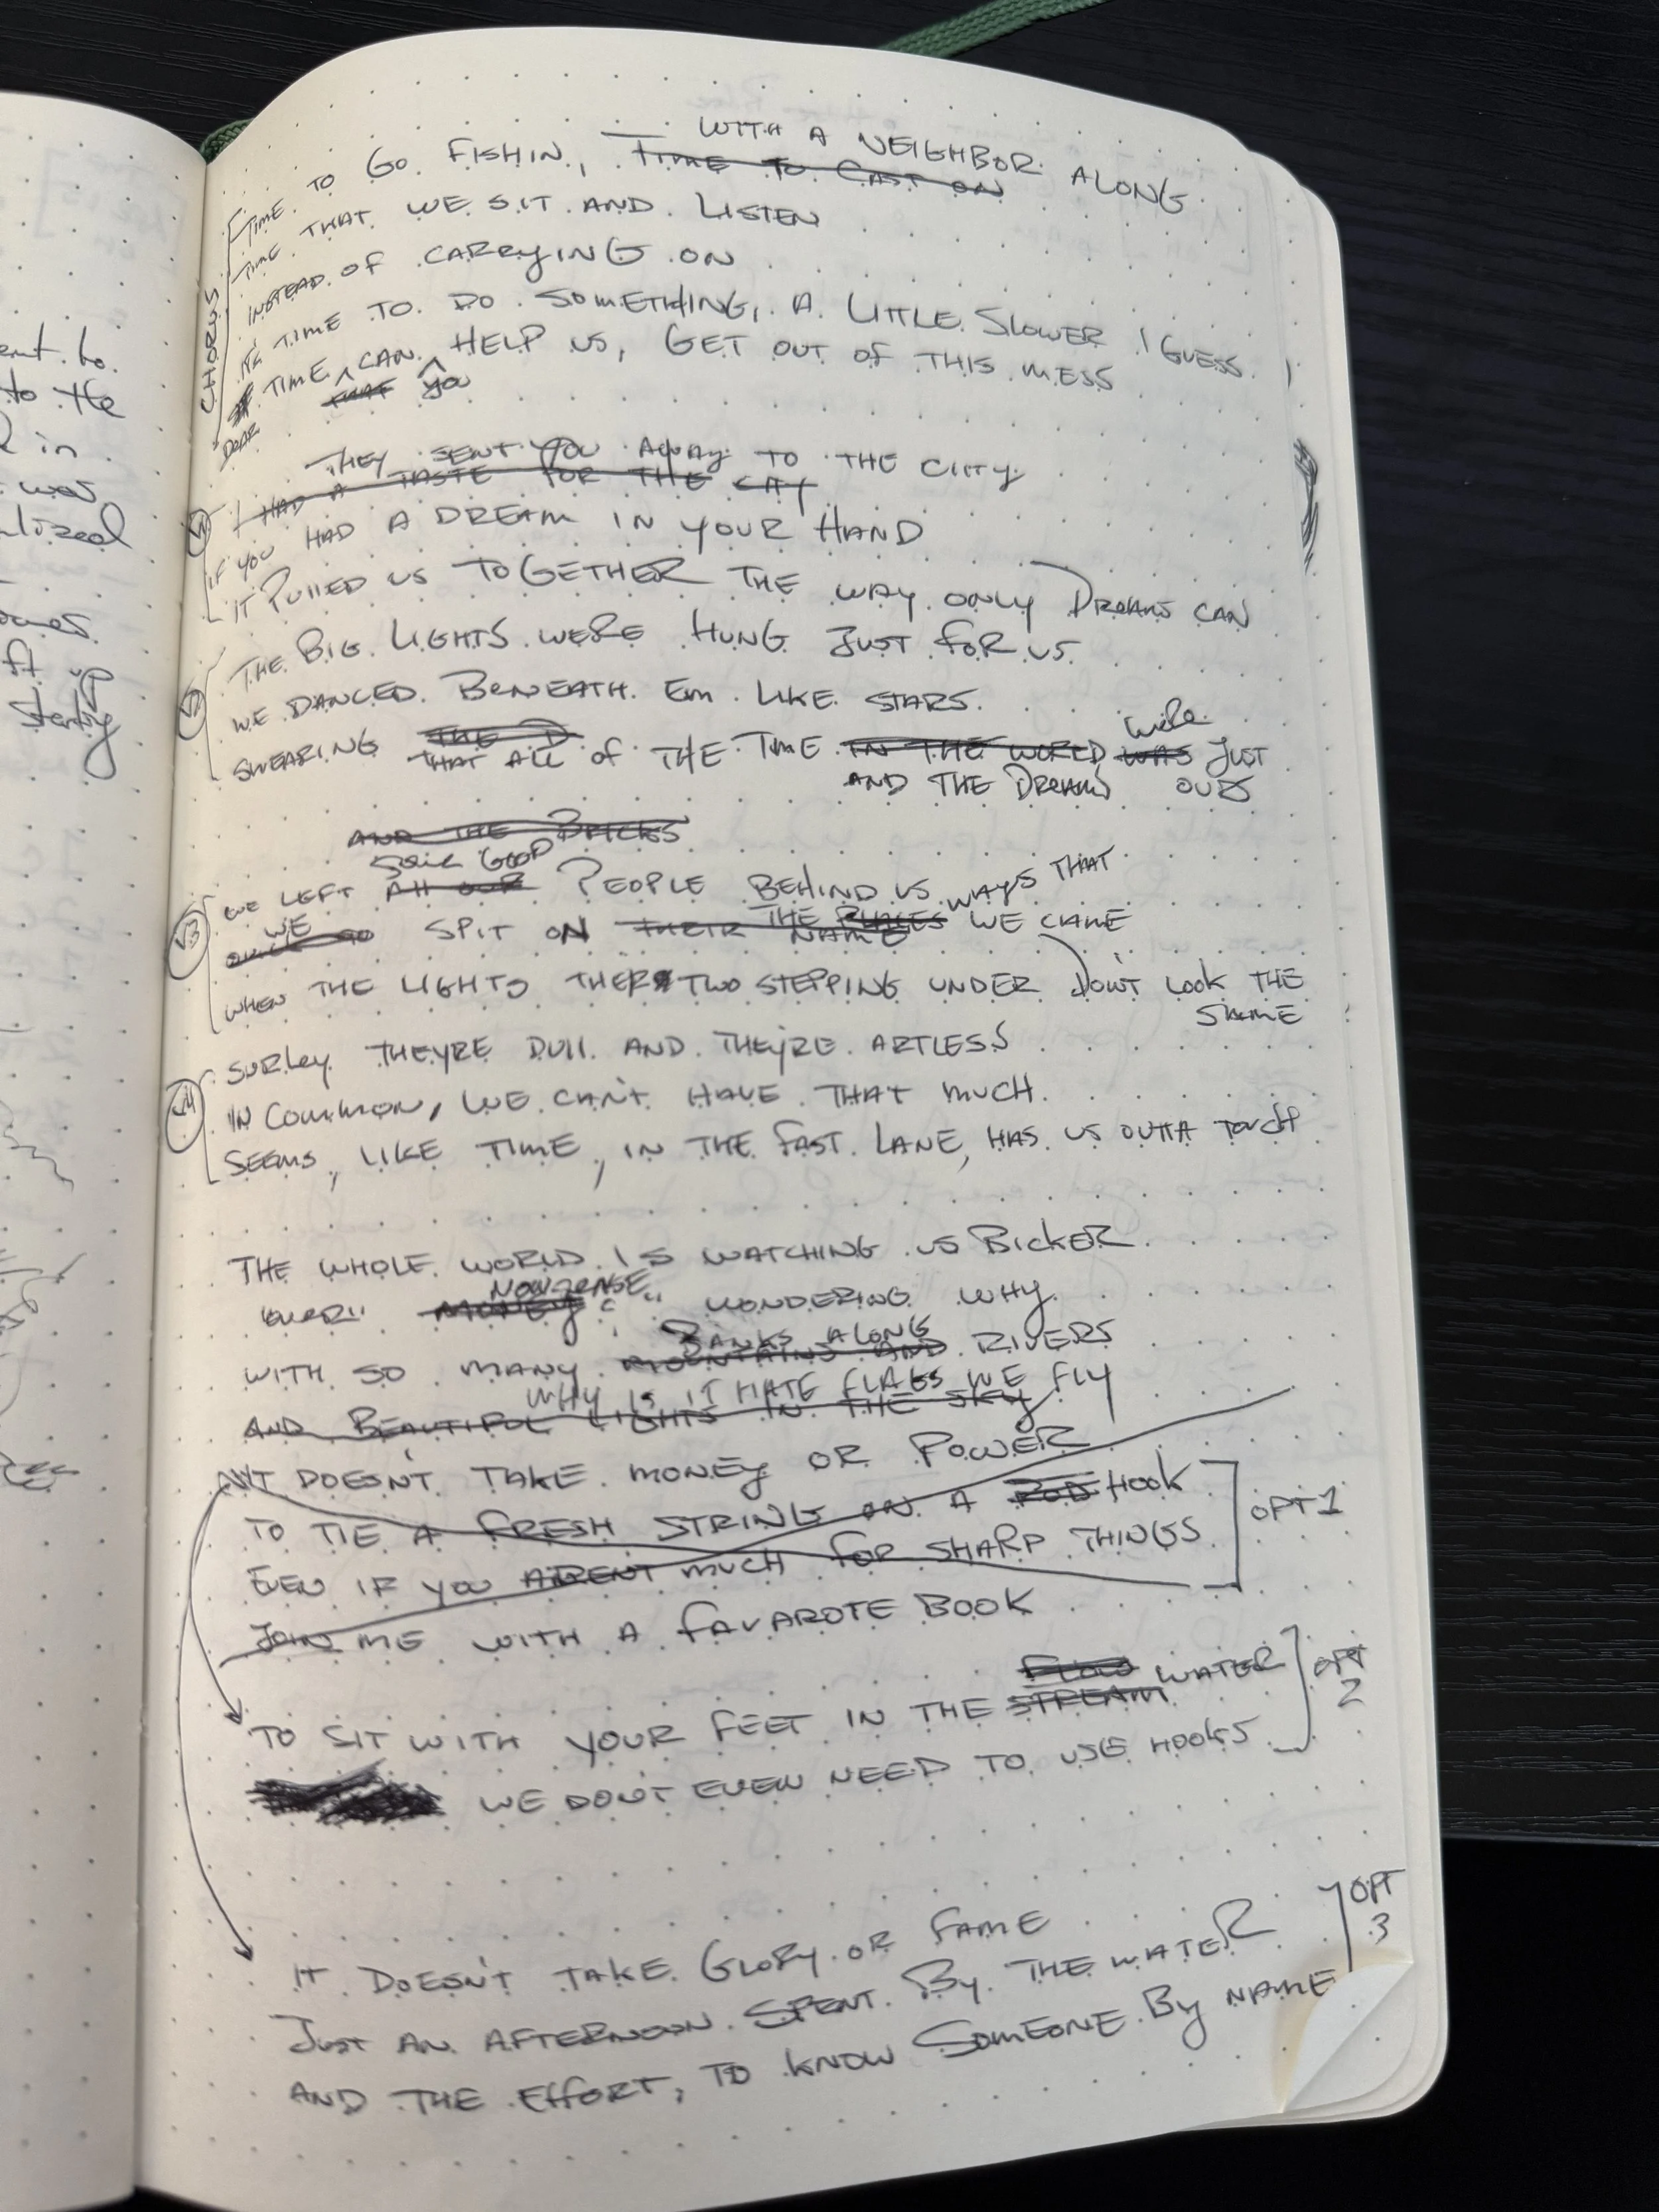 ent to
to the
in
was
alized
ft up
starting
CHORUS
WITH A NEIGHBOR ALONG
TIME TO GO FISHIN, TIME TO CAST ON
TIME THAT WE SIT AND LISTEN
INSTEAD OF CARRYING ON
TIME TO DO SOMETHING, A LITTLE SLOWER I GUESS
TIME CAN HELP US, GET OUT OF THIS MESS
THAT YOU
DEAR
THEY SENT YOU AWAY TO THE CITY
V1
I HAD A TASTE FOR THE CITY
IF YOU HAD A DREAM IN YOUR HAND
IT PULLED US TOGETHER THE WAY ONLY DREAMS CAN
V2
THE BIG LIGHTS WERE HUNG JUST FOR US
WE DANCED BENEATH EM LIKE STARS
WERE
SWEARING THE D THAT ALL OF THE TIME IN THE WORLD WAS JUST
AND THE DREAMS OURS
AND THE BRICKS
SOME GOOD
V3
WE LEFT All OUR PEOPLE BEHIND US
WE SPIT ON THEIR NAME THE PLACES WAYS THAT WE CAME
WHEN THE LIGHTS THER TWO STEPPING UNDER DON'T LOOK THE
SAME
V4
SURLEY THEYRE DUll AND THEY'RE ARTLESS
IN COMMON, WE CAN'T HAVE THAT MUCH
SEEMS, LIKE TIME, IN THE FAST LANE, HAS US OUTTA TOUCH
THE WHOLE WORLD IS WATCHING US BICKER
NONSENSE
OVER MONEY WONDERING WHY
BANKS ALONG
WITH SO MANY MOUNTAINS AND RIVERS
WHY IS IT HATE FLAGS WE FLY
AND BEAUTIFUL LIGHTS IN THE SKY
IT DOESN'T TAKE MONEY OR POWER
TO TIE A FRESH STRING ON A ROD HOOK
OPT 1
EVEN IF YOU ARENT MUCH FOR SHARP THINGS
JOIN ME WITH A FAVAROTE BOOK
FLOW
TO SIT WITH YOUR FEET IN THE STREAM WATER
OPT 2
WE DON'T EVEN NEED TO USE HOOKS
OPT 3
IT DOESN'T TAKE GLORY OR FAME
JUST AN AFTERNOON SPENT BY THE WATER
AND THE EFFORT, TO KNOW SOMEONE BY NAME